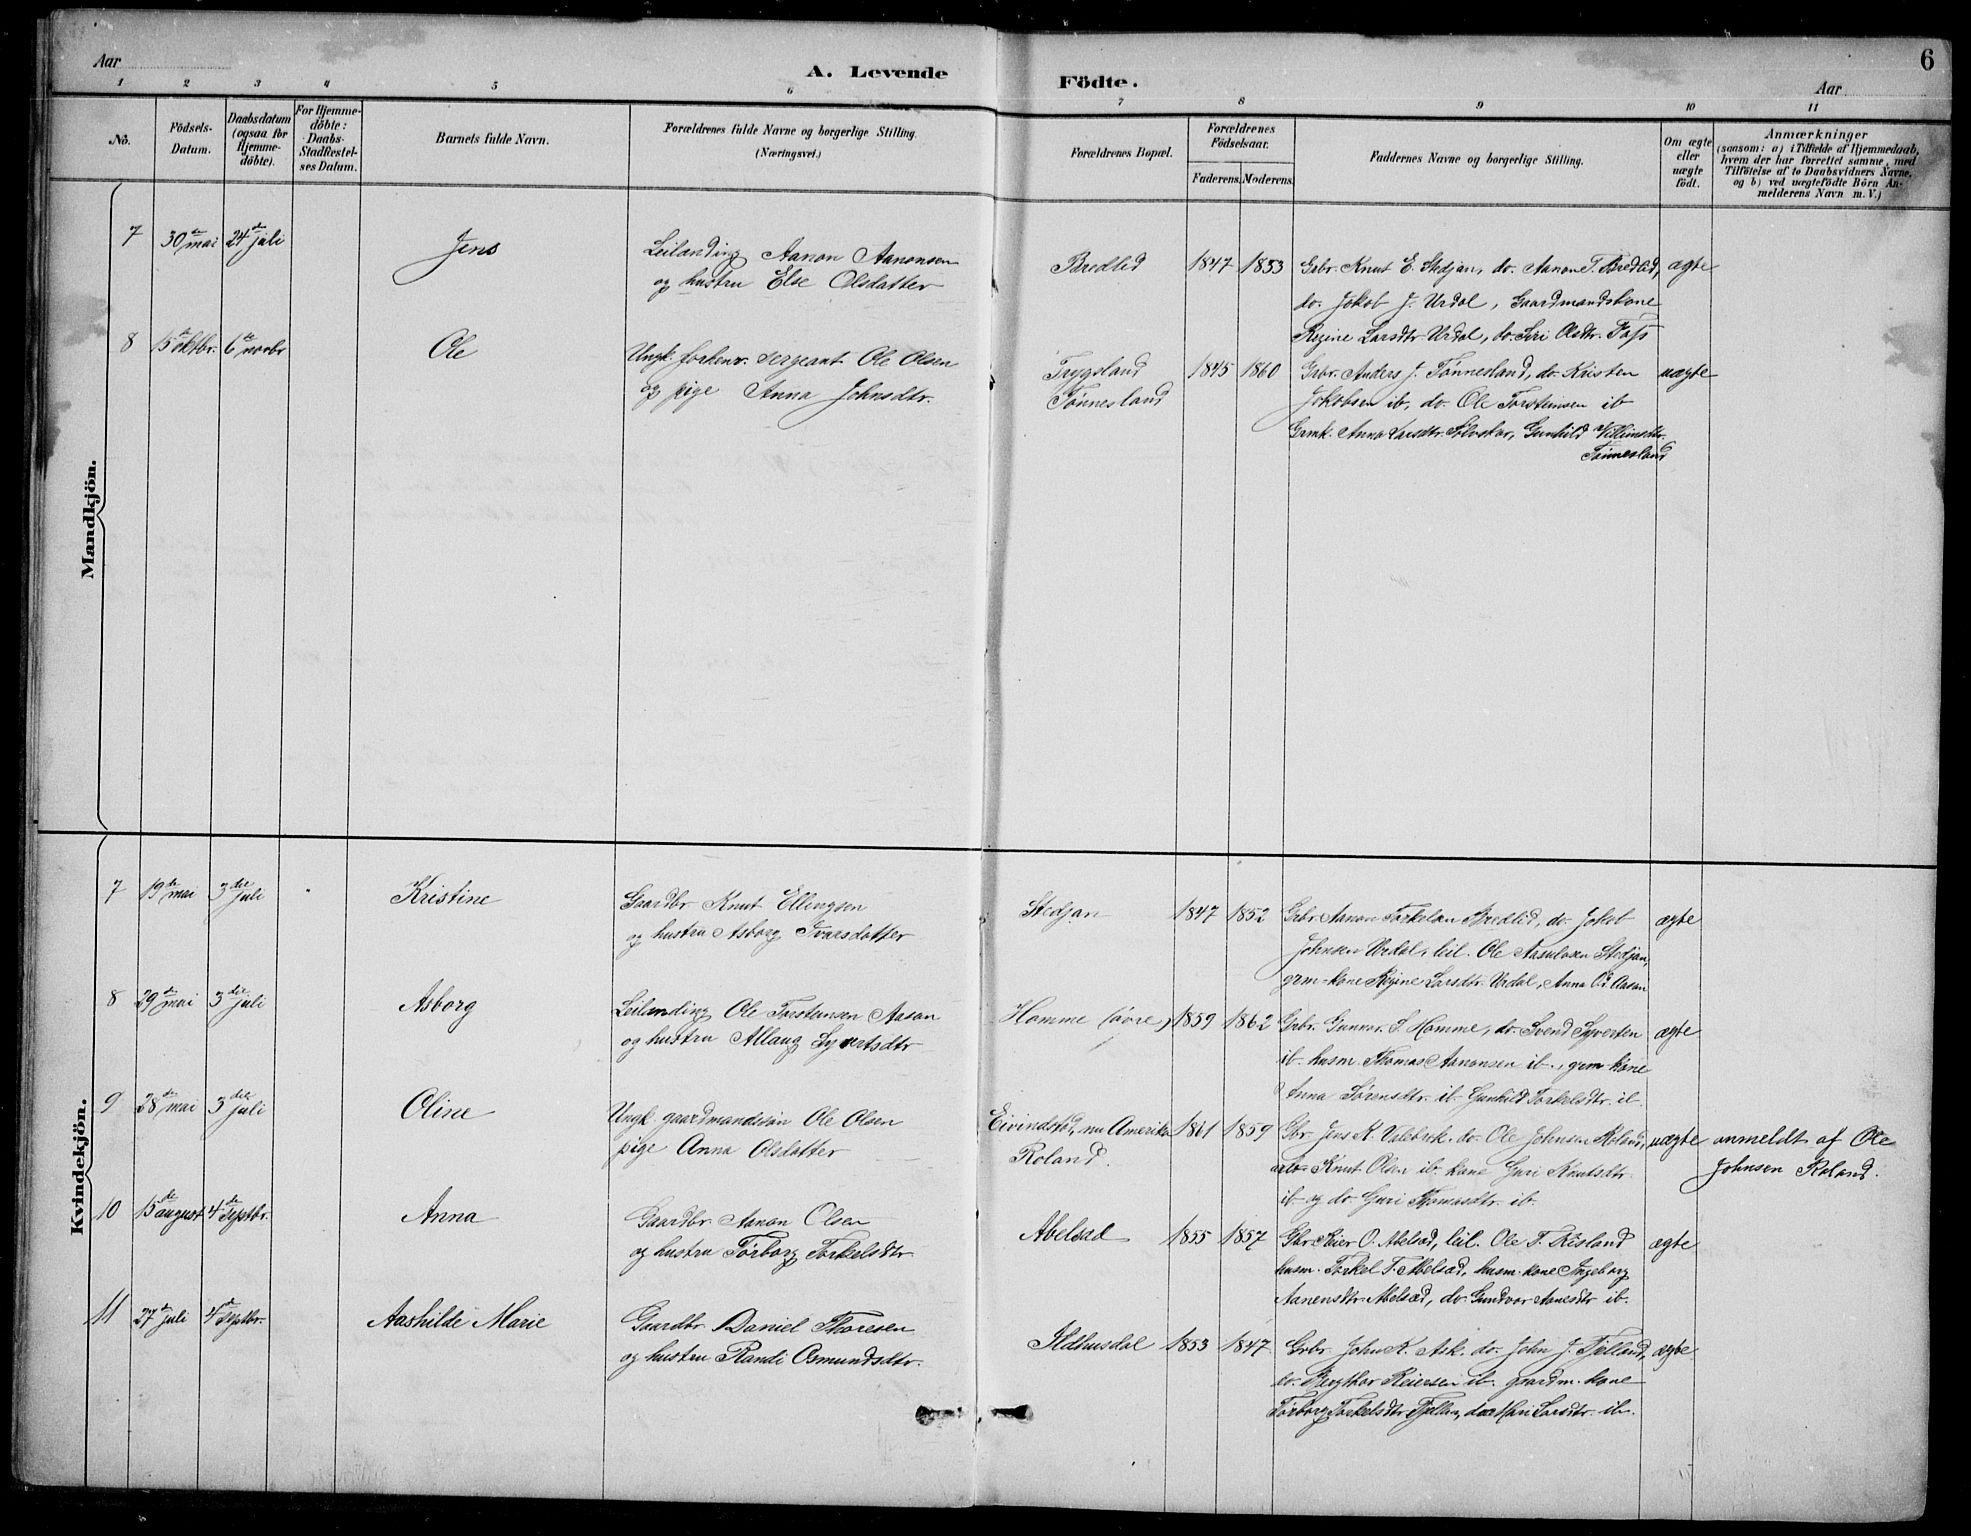 6
Aar
A. Levende Födte.
Aar
1 2 3 4 5 6 7 8 9 10 11
No.
Födsels-
Datum.
Daabsdatum
(ogsaa for
Hjemme-
döbte).
For Hjemme-
döbte:
Daabs-
Stadfæstel-
ses Datum.
Barnets fulde Navn.
Forældrenes fulde Navne og borgerlige Stilling.
(Næringsvei.)
Forældrenes Bopæl.
Forældrenes
Födselsaar.
Faderens. Moderens.
Faddernes Navne og borgerlige Stilling.
Om ægte
eller
uægte
födt.
Anmærkninger
(saasom: a) i Tilfælde af Hjemmedaab,
hvem der har forrettet samme, med
Tilföielse af to Daabsvidners Navne,
og b) ved uægtefödte Börn An-
melderens Navn m. V.)
Mandkjön.
7 30de mai 24de juli Jens
Leilænding Aanon Aanonsen
og hustru Else Olsdatter
Bredlid 1847 1853
Gbr. Knut E. Stedjan, do. Aanon T. Bredlid,
do. Jokob J. Urdal, Gaardmandskone
Regine Larsdtr Urdal, do. Siri Olsdtr. Foss
ægte
8 15de oktbr. 6te novbr Ole
Ungk. forhenv. sergeant Ole Olsen
og pige Anna Johnsdtr.
Trygsland
Tønnesland
1845 1860
Grbr. Anders J. Tønnesland, do. Kristen
Jokobsen ib, do. Ole Torstensen ib
Grmk. Anna Larsdtr. Gunhild Villumsdtr.
Tønnesland
uægte
Kvindekjön.
7 19de mai 3die juli Kristine
Gaardbr Knut Ellingsen
og hustru Asborg Ivarsdatter
Stedjan 1847 1852
Grbr. Aanon Torkelsen Bredlid, do. Jokob
Johnsen Urdal, leil. Ole Aasulvsen Stedjan,
grm-kone Regine Larsdtr. Urdal, Anna Aasan
ægte
8 29de mai 3die juli Asborg
Leilænding Ole Torstensen Aasan
og hustru Allaug Syvertsdtr
Homme (øvre) 1859 1862
Grbr. Gunnar S. Homme, do. Svend Syvertsen
ib. husm. Thomas Aanonsen ib., grm-kone
Anna Sørensdtr ib. Gunhild Torkelsdtr. ib.
ægte
9 28de mai 3die juli Oline
Ungk. gaardmandssøn Ole Olsen
pige Anna Olsdatter
Eivindstad, nu Amerika
Roland.
1861 1859
Gbr. Jens K. Valebrok. do. Ole Johnsen Roland,
arb. Knut Olsen ib. kone Guri Knutsdtr
ib og do Guri Thomasdtr. ib.
uægte
anmeldt af Ole
Johnsen Roland.
10 15de august 4de Septbr. Anna
Gaardbr. Aanon Olsen
og hustru Torborg Torkelsdtr
Abelsæd 1855 1857
Gbr. Reier O. Abelsæd, leil. Ole T. Risland
husm. Torkel T. Abelsæd, husm. kone Ingeborg
Aanensdtr. Abelsæd, do. Gundvor Aanesdtr ib.
ægte
11 27de juli 4de Septbr. Aashilde Marie
Gaardbr. Daniel Thoresen
og hustru Randi Osmundsdtr.
Ildhusdal 1853 1847
Grbr. John K. Ask. do. John J. Fjelland,
do. Bergthor Reiersen ib. gaardm. kone
Torborg Torkelsdtr Mari Larsdtr. ib.
ægte